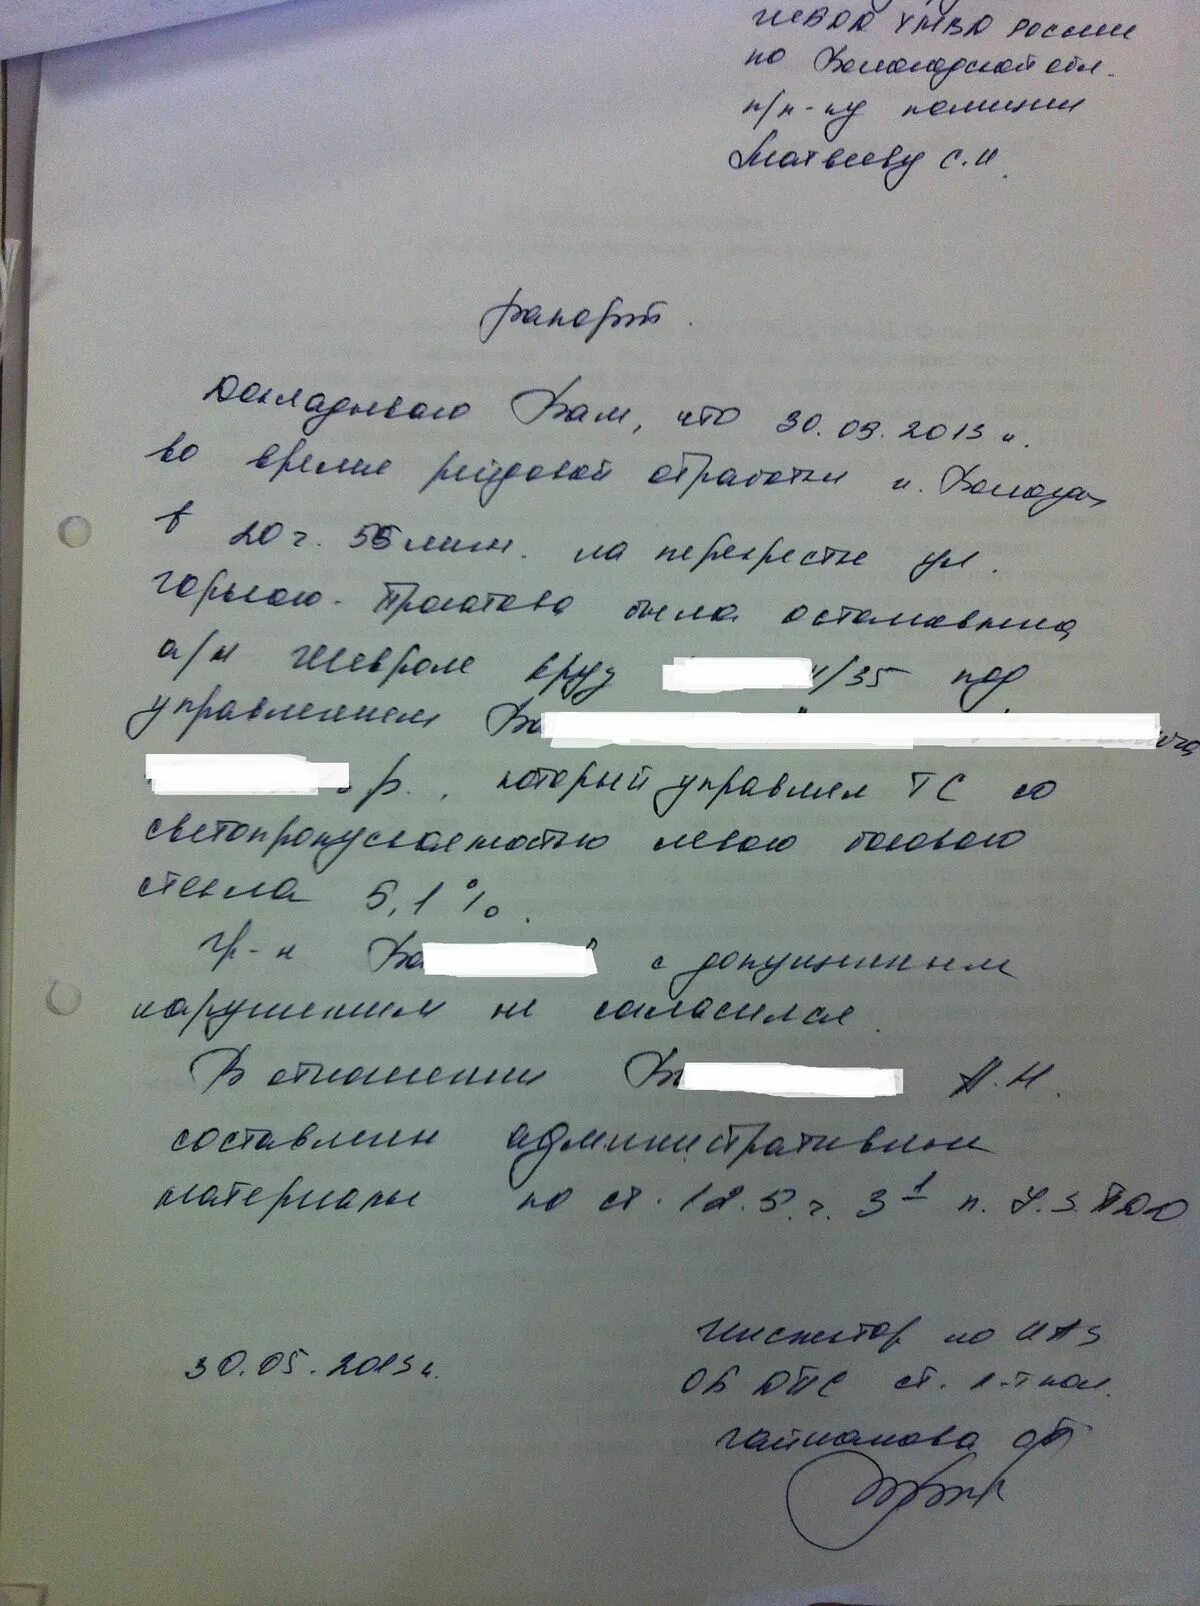 ГИБДД УМВД России
по Вологодской обл.
п/п-ку полиции
Матвееву С.И.
Рапорт.
Докладываю Вам, что 30.05.2013 г.
во время рейдовой отработки г. Вологды
в 20 ч. 55 мин. на перекрестке ул.
Горького - Прокатова была остановлена
а/м Шевроле круз /35 под
управлением Ба
р., который управлял ТС со
светопропускаемостью левого бокового
стекла 5,1 %.
Гр-н Ба с допущенным
нарушением не согласился.
В отношении Ба А.Н.
составлен административный
материал по ст. 12.5 ч. 3¹ п. 7.3 ПДД
30.05.2013 г. Инспектор по ИАЗ
ОБ ДПС ст. л-т пол.
Гайнанова